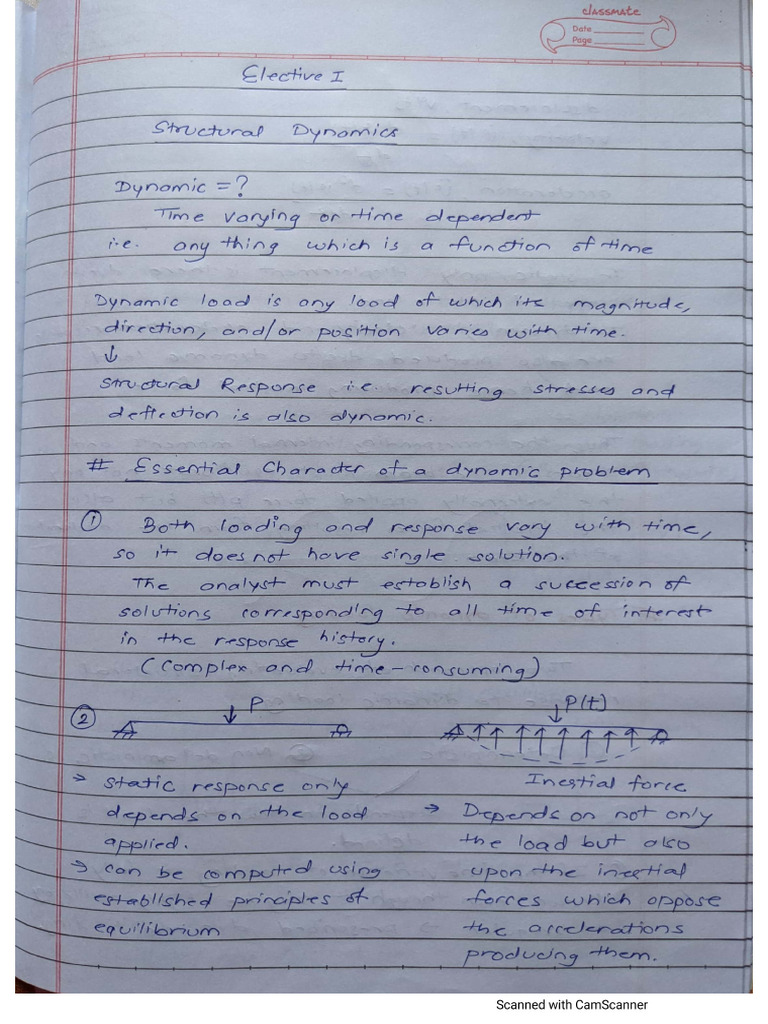 classmate
Date
Page
Elective I
Structural Dynamics
Dynamic = ?
Time varying or time dependent
i.e. any thing which is a function of time
Dynamic load is any load of which its magnitude,
direction, and/or position varies with time.
↓
Structural Response i.e. resulting stresses and
deflection is also dynamic.
# Essential Character of a dynamic problem
① Both loading and response vary with time,
so it does not have single solution.
The analyst must establish a succession of
solutions corresponding to all time of interest
in the response history.
(Complex and time-consuming)
② P
→ static response only
depends on the load
applied.
→ can be computed using
established principles of
equilibrium
P(t)
Inertial force
→ Depends on not only
the load but also
upon the inertial
forces which oppose
the accelerations
producing them.
Scanned with CamScanner